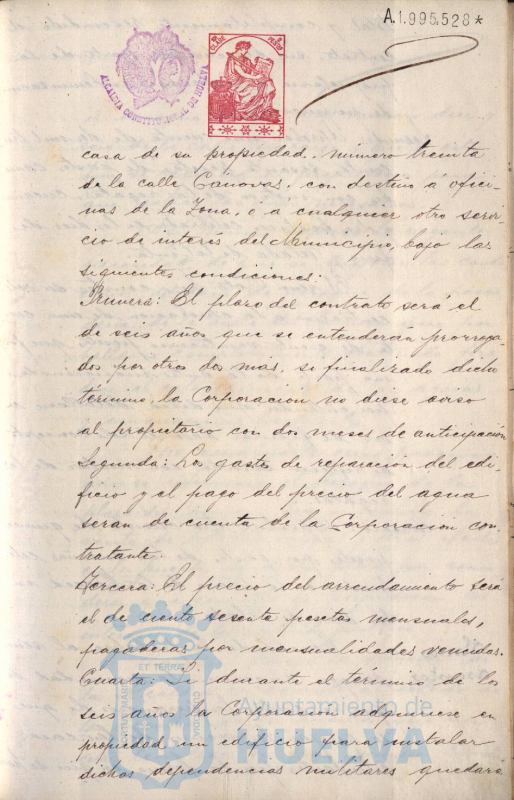 A.1.995.528*
ALCALDIA CONSTITUCIONAL DE HUELVA
casa de su propiedad, número treinta
de la calle Cánovas, con destino á ofici-
nas de la Zona, ó á cualquier otro servi-
cio de interés del Municipio, bajo las
siguientes condiciones:
Primera: El plazo del contrato será el
de seis años que se entenderán prorroga-
dos por otros dos más, si finalizado dicho
término, la Corporación no diese aviso
al propietario con dos meses de anticipación
Segunda: Los gastos de reparación del edi-
ficio y el pago del precio del agua
serán de cuenta de la Corporación con-
tratante.
Tercera: El precio del arrendamiento será
el de ciento sesenta pesetas mensuales,
pagaderas por mensualidades vencidas.
Cuarta: Si durante el término de los
seis años la Corporación adquiriese en
propiedad un edificio para instalar
dichas dependencias militares quedará
ET TERRA
Ayuntamiento de
HUELVA